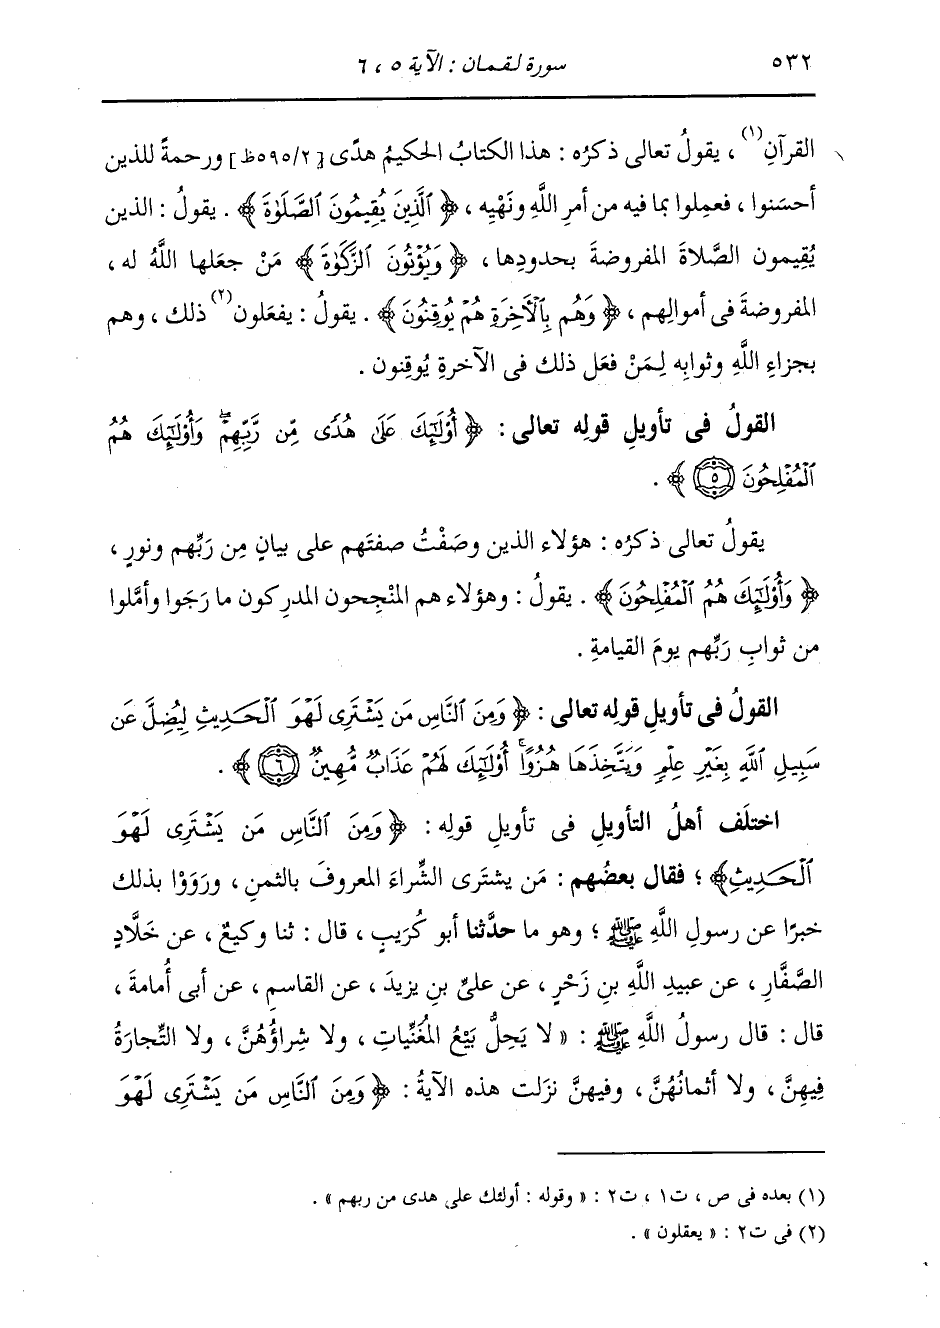 ٥٣٢ سورة لقمان : الآية ٥ ، ٦
القرآنِ(١) ، يقولُ تعالى ذكرُه : هذا الكتابُ الحكيمُ هدًى [٥٩٥/٢ظ] ورحمةً للذين
أحسَنوا ، فعمِلوا بما فيه من أمرِ اللَّهِ ونَهْيِه ، ﴿ ٱلَّذِينَ يُقِيمُونَ ٱلصَّلَوٰةَ ﴾ . يقولُ : الذين
يُقِيمون الصَّلاةَ المفروضةَ بحدودِها ، ﴿ وَيُؤْتُونَ ٱلزَّكَوٰةَ ﴾ مَنْ جعَلها اللَّهُ له ،
المفروضةَ فى أموالِهم ، ﴿ وَهُم بِٱلْأَخِرَةِ هُمْ يُوقِنُونَ ﴾ . يقولُ : يفعَلون(٢) ذلك ، وهم
بجزاءِ اللَّهِ وثوابِه لِمَنْ فعَل ذلك فى الآخرةِ يُوقِنون .
القولُ فى تأويلِ قولِه تعالى : ﴿ أُوْلَٰٓئِكَ عَلَىٰ هُدًى مِّن رَّبِّهِمْ ۖ وَأُوْلَٰٓئِكَ هُمُ
ٱلْمُفْلِحُونَ ٥ ﴾ .
يقولُ تعالى ذكرُه : هؤلاء الذين وصَفْتُ صفتَهم على بيانٍ مِن رَبِّهم ونورٍ ،
﴿ وَأُوْلَٰٓئِكَ هُمُ ٱلْمُفْلِحُونَ ﴾ . يقولُ : وهؤلاء هم المنْجِحون المدرِكون ما رَجَوا وأمَّلوا
من ثوابِ رَبِّهم يومَ القيامةِ .
القولُ فى تأويلِ قولِه تعالى : ﴿ وَمِنَ ٱلنَّاسِ مَن يَشْتَرِى لَهْوَ ٱلْحَدِيثِ لِيُضِلَّ عَن
سَبِيلِ ٱللَّهِ بِغَيْرِ عِلْمٍ وَيَتَّخِذَهَا هُزُوًا ۚ أُوْلَٰٓئِكَ لَهُمْ عَذَابٌ مُّهِينٌ ٦ ﴾ .
اختلَف أهلُ التأويلِ فى تأويلِ قولِه : ﴿ وَمِنَ ٱلنَّاسِ مَن يَشْتَرِى لَهْوَ
ٱلْحَدِيثِ﴾ ؛ فقال بعضُهم : مَن يشترى الشِّراءَ المعروفَ بالثمنِ ، ورَوَوْا بذلك
خبرًا عن رسولِ اللَّهِ ﷺ ؛ وهو ما حدَّثنا أبو كُرَيبٍ ، قال : ثنا وكيعٌ ، عن خَلَّادٍ
الصَّفَّارِ ، عن عبيدِ اللَّهِ بنِ زَحْرٍ ، عن علىِّ بنِ يزيدَ ، عن القاسمِ ، عن أبى أُمامةَ ،
قال : قال رسولُ اللَّهِ ﷺ : « لا يَحِلُّ بَيْعُ المُغَنِّياتِ ، ولا شِراؤُهُنَّ ، ولا التِّجارَةُ
فِيهِنَّ ، ولا أثمانُهُنَّ ، وفيهنَّ نزَلت هذه الآيةُ : ﴿ وَمِنَ ٱلنَّاسِ مَن يَشْتَرِى لَهْوَ
(١) بعده فى ص ، ت١ ، ت٢ : « وقوله : أولئك على هدى من ربهم » .
(٢) فى ت٢ : « يعقلون » .